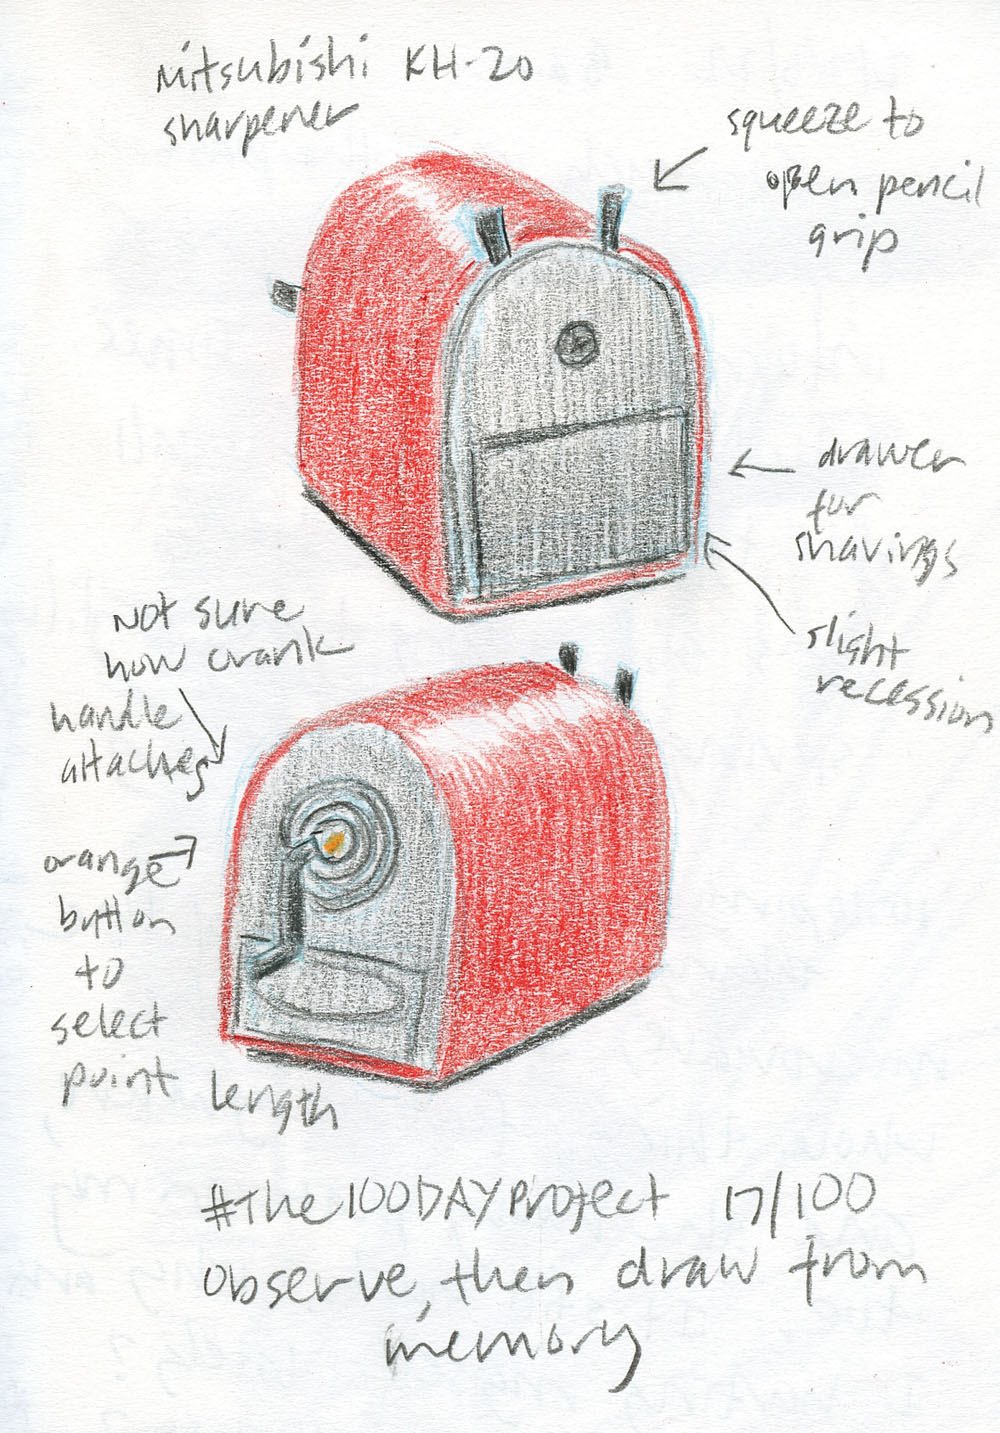 Mitsubishi KH-20
sharpener
squeeze to
open pencil
grip
drawer
for
shavings
slight
recession
Not sure
how crank
handle
attaches
orange
button
to
select
point
length
#The100DAYProject 17/100
observe, then draw from
memory